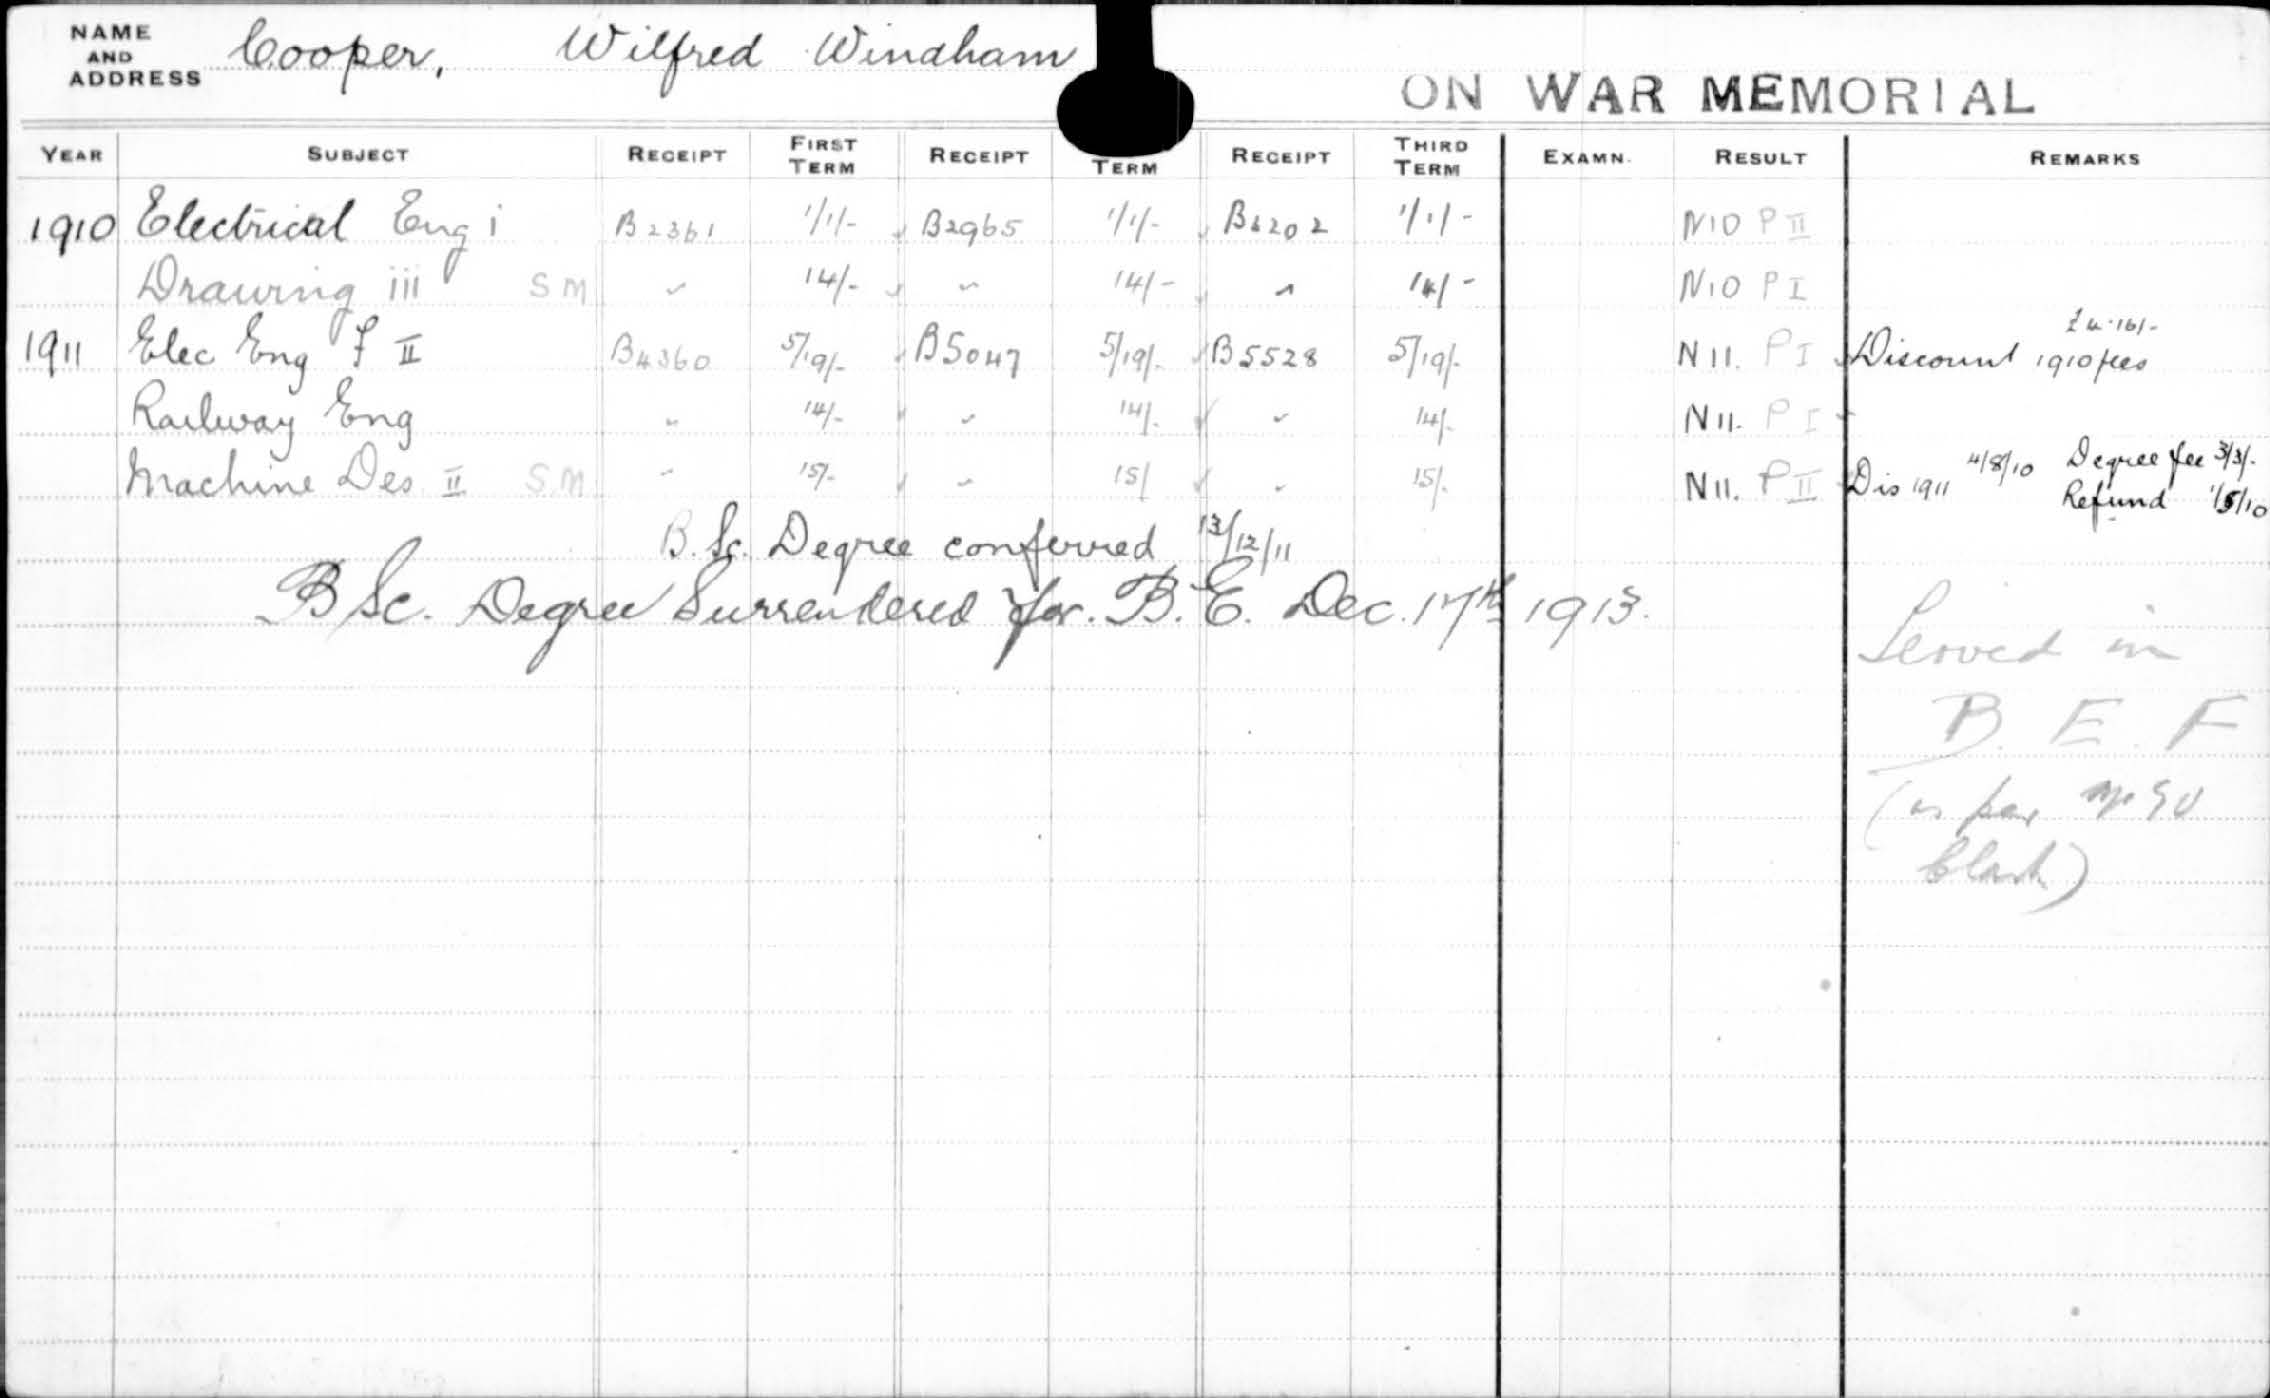 NAME AND ADDRESS Cooper, Wilfred Windham
ON WAR MEMORIAL
YEAR SUBJECT RECEIPT FIRST TERM RECEIPT TERM RECEIPT THIRD TERM EXAMN. RESULT REMARKS
1910 Electrical Eng i B2361 1/1/- B2965 1/1/- B4202 1/1/- N10 P II
Drawing iii S M 14/- 14/- 14/- N10 P I
£4.16/-
1911 Elec Eng II B4360 5/19/- B5047 5/19/- B5528 5/19/- N11. P I Discount 1910 fees
Railway Eng 14/- 14/- 14/- N11. P I
Machine Des II S.M 15/- 15/ 15/- N11. P II Dis 1911 4/8/10 Degree fee 3/3/-
Refund 1/5/10
B.Sc. Degree conferred 13/12/11
B Sc. Degree Surrendered for. B.E. Dec. 17th 1913.
Served in
B. E. F
(as per